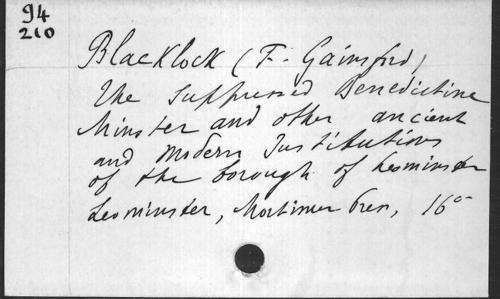 94
210
Blacklock (F. Gainsford)
The suppressed Benedictine
Minster and other ancient
and modern Institutions
of the borough of Leominster
Leominster, Mortimer Press, 16°